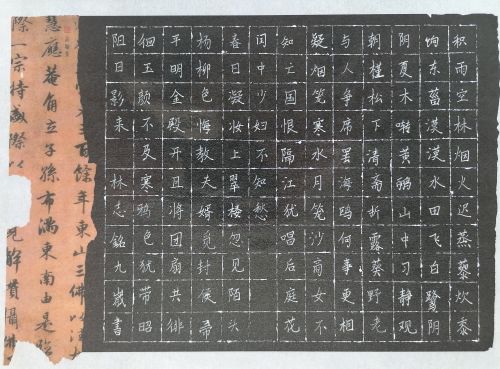 积雨空林烟火迟蒸藜炊黍
饷东菑漠漠水田飞白鹭阴
阴夏木啭黄鹂山中习静观
朝槿松下清斋折露葵野老
与人争席罢海鸥何事更相
疑烟笼寒水月笼沙商女不
知亡国恨隔江犹唱后庭花
闺中少妇不知愁
春日凝妆上翠楼忽见陌头
杨柳色悔教夫婿觅封侯帚
平明金殿开且将团扇共徘
徊玉颜不及寒鸦色犹带昭
阳日影来 林志铭九岁书
三百餘年東山三佛以
慧應菴角立子孫布滿東南由是臨
際一宗特盛際以